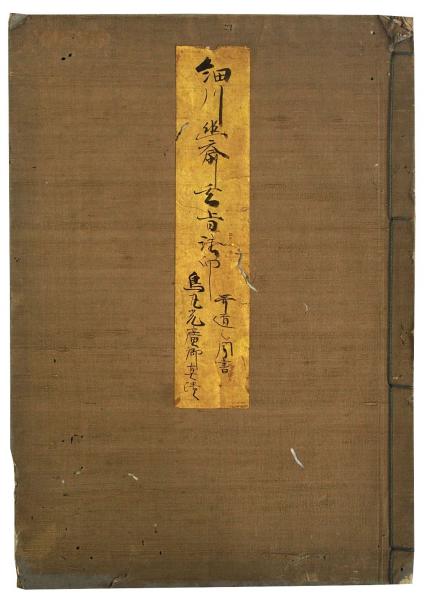 細川幽斎玄旨法印
哥道之聞書
烏丸光廣卿真蹟